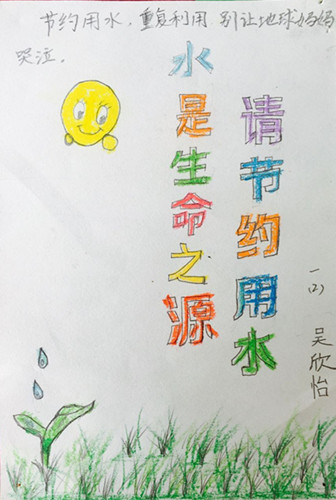 节约用水，重复利用 别让地球妈妈
哭泣。
请节约用水
水是生命之源
一(2) 吴欣怡